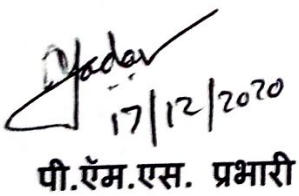 Yadav
17/12/2020
पी.ऍम.एस. प्रभारी